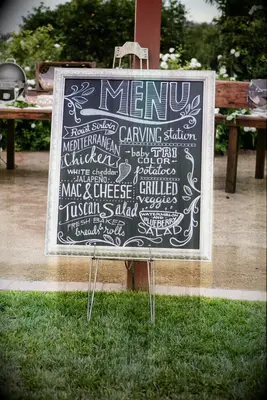 MENU
Roast Sirloin
CARVING station
MEDITERRANEAN
Chicken
baby TRI
COLOR
potatoes
white cheddar
JALAPEÑO
MAC & CHEESE
GRILLED
veggies
Tuscan Salad
FRESH BAKED
breads & rolls
WATERMELON AND
BLUEBERRY
SALAD